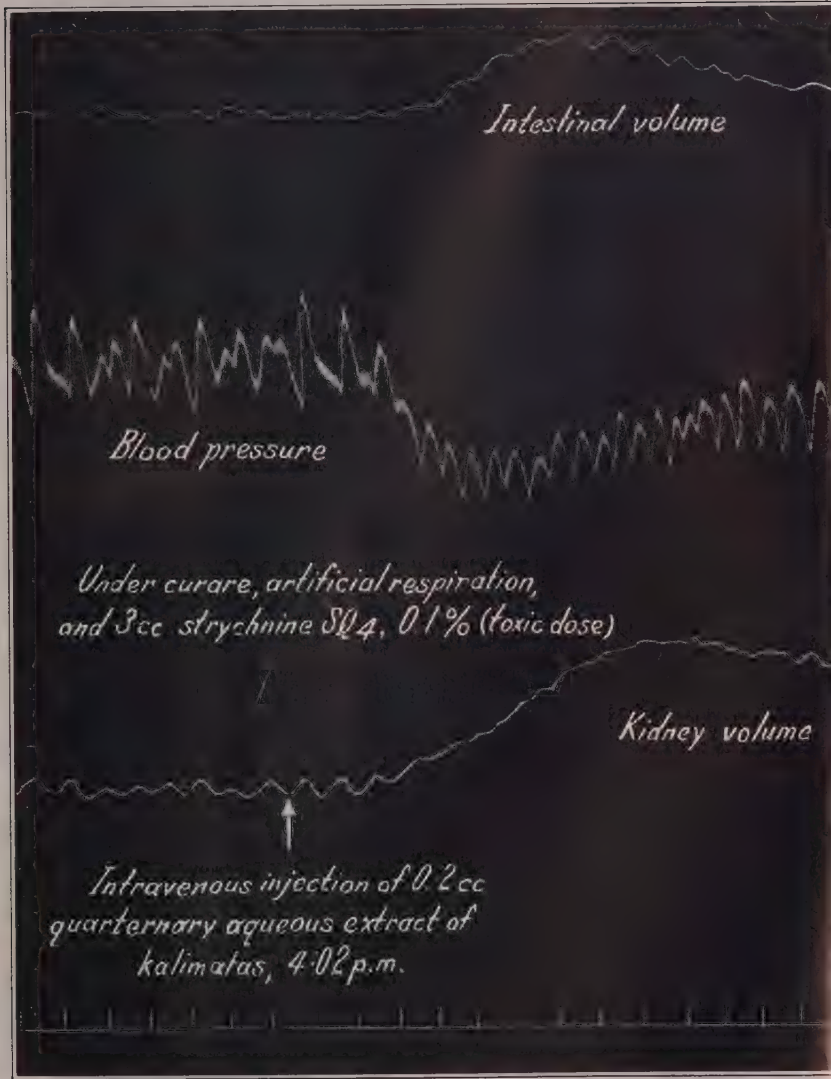 Intestinal volume
Blood pressure
Under curare, artificial respiration,
and 3cc strychnine SO4, 0.1% (toxic dose)
Kidney volume
Intravenous injection of 0.2cc
quarternary aqueous extract of
kalimatas, 4·02 p.m.